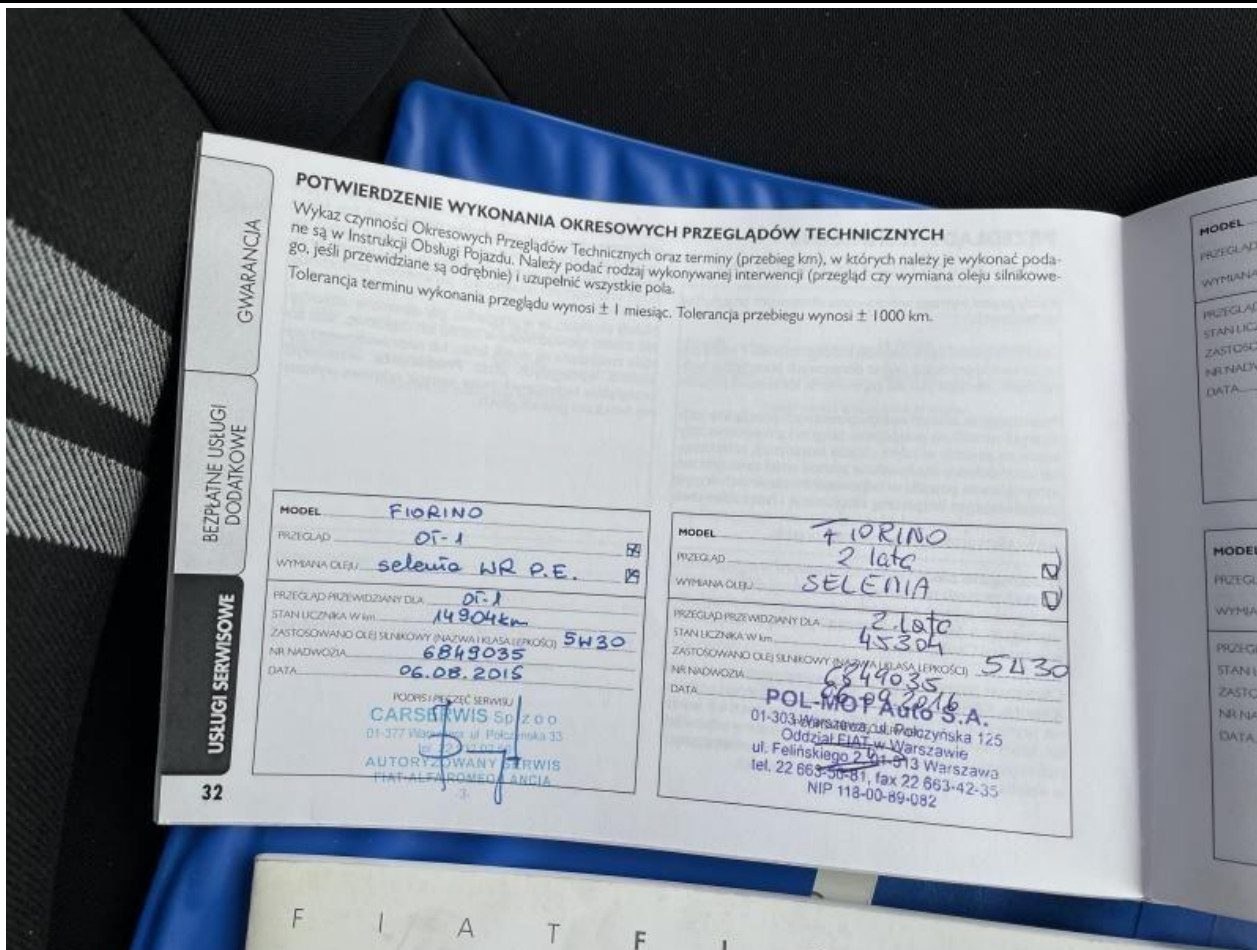 GWARANCJA
BEZPŁATNE USŁUGI
DODATKOWE
USŁUGI SERWISOWE
32
POTWIERDZENIE WYKONANIA OKRESOWYCH PRZEGLĄDÓW TECHNICZNYCH
Wykaz czynności Okresowych Przeglądów Technicznych oraz terminy (przebieg km), w których należy je wykonać poda-
ne są w Instrukcji Obsługi Pojazdu. Należy podać rodzaj wykonywanej interwencji (przegląd czy wymiana oleju silnikowe-
go, jeśli przewidziane są odrębnie) i uzupełnić wszystkie pola.
Tolerancja terminu wykonania przeglądu wynosi ± 1 miesiąc. Tolerancja przebiegu wynosi ± 1000 km.
MODEL FIORINO
PRZEGLĄD OT-1
WYMIANA OLEJU selenia WR P.E.
PRZEGLĄD PRZEWIDZIANY DLA OT-1
STAN LICZNIKA W km 14904km
ZASTOSOWANO OLEJ SILNIKOWY (NAZWA I KLASA LEPKOŚCI) 5W30
NR NADWOZIA 6849035
DATA 06.08.2015
PODPIS I PIECZĘĆ SERWISU
CARSERWIS Sp z o o
01-377 Warszawa ul Połczyńska 33
AUTORYZOWANY SERWIS
FIAT-ALFA ROMEO LANCIA
-3-
MODEL FIORINO
PRZEGLĄD 2 lata
WYMIANA OLEJU SELENIA
PRZEGLĄD PRZEWIDZIANY DLA 2 lata
STAN LICZNIKA W km 45304
ZASTOSOWANO OLEJ SILNIKOWY (NAZWA I KLASA LEPKOŚCI) 5W30
NR NADWOZIA 6849035
DATA 06.09.2016
POL-MOT Auto S.A.
01-303 Warszawa, ul. Połczyńska 125
Oddział FIAT w Warszawie
ul. Felińskiego 2, 01-513 Warszawa
tel. 22 663-50-81, fax 22 663-42-35
NIP 118-00-89-082
MODEL
PRZEGLĄD
WYMIANA
PRZEGLĄD
STAN LICZ
ZASTOSO
NR NADW
DATA
MODEL
PRZEGL
WYMIA
PRZEGL
STAN L
ZASTO
NR NA
DATA
FIAT FI